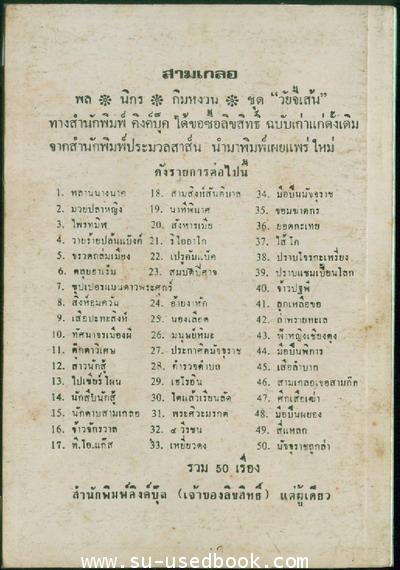 สามเกลอ
พล ❋ นิกร ❋ กิมหงวน ❋ ชุด “วัยจี๊เส้น”
ทางสำนักพิมพ์ คิงค์บุ๊ค ได้ขอซื้อลิขสิทธิ์ ฉบับเก่าแก่ดั้งเดิม
จากสำนักพิมพ์ประมวลสาส์น นำมาพิมพ์เผยแพร่ใหม่
ดังรายการต่อไปนี้
1. พลานนางนาค
2. มวยปลาหญิง
3. ไพรทมิฬ
4. วายร้ายปล้นแบ๊งค์
5. จรวดถล่มเมือง
6. ตลุยฮาเร็ม
7. ซุปเปอร์แมนดาวพระศุกร์
8. สิงห์อมควัน
9. เสือปะทะสิงห์
10. ทัศนาจรเมืองผี
11. ตุ๊กตาวิเศษ
12. สาวนักสู้
13. ไปเซียร์ไผน
14. นักสืบนักสู้
15. นักดาบสามเกลอ
16. จ้าวจักรวาล
17. ที.ไอ.แก๊ส
18. สามสิงห์สันติบาล
19. นาทีพิฆาต
20. สังหารเมีย
21. ริโอฮาโก
22. เปรตัมแน็ค
23. สมบัติปีศาจ
24. อ้ายงาหัก
25. น้องเลือด
26. มนุษย์หิมะ
27. ประกาศิตมัจจุราช
28. ตำรวจตำบล
29. เอโรอิน
30. ไดแล้วเรียนลัด
31. พระศิวะมรกต
32. ๔ วีรชน
33. เหยี่ยวดง
34. มือปืนมัจจุราช
35. จอมฆาตกร
36. ยอดกะเทย
37. ไส้โต
38. ปราบโจรกะเหรี่ยง
39. ปราบแชมเปี้ยนโลก
40. จ้าวปฐพี
41. ลูกเหลือขอ
42. ลำพรายทะเล
43. ฟ้าหญิงเชียงตุง
44. มือปืนพิการ
45. เสือลำบาก
46. สามเกลอเจอสามก๊ก
47. ศึกเสือเฒ่า
48. มือปืนผยอง
49. สี่แหลก
50. มัจจุราชถูกล่า
รวม 50 เรื่อง
สำนักพิมพ์คิงค์บุ๊ค (เจ้าของลิขสิทธิ์) แต่ผู้เดียว
www.su-usedbook.com